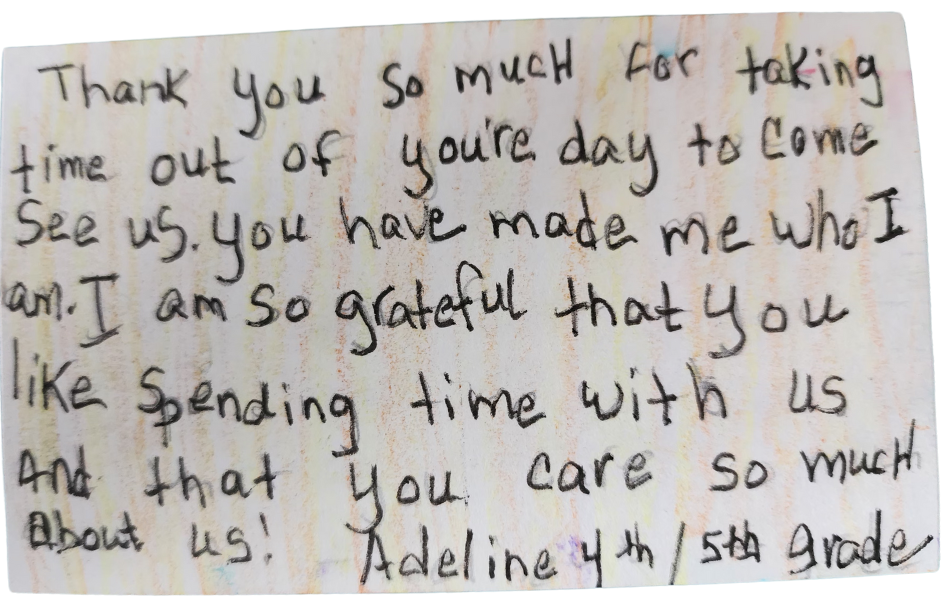 Thank you so much for taking
time out of you're day to come
see us. you have made me who I
am. I am so grateful that you
like spending time with us
And that you care so much
About us!  Adeline 4th/5th grade